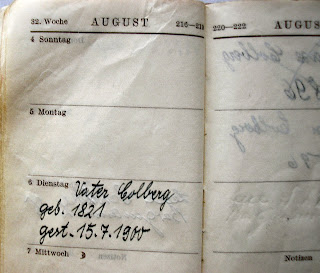 32. Woche AUGUST 216—21
4 Sonntag
5 Montag
6 Dienstag Vater Colberg
geb. 1821
gest. 15.7.1900
7 Mittwoch
220—222 AUGUST
Notizen